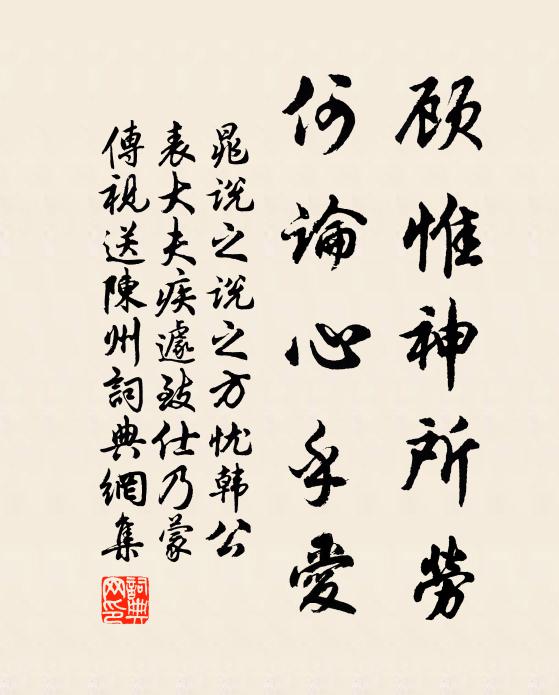 顾惟神所劳
何论心乎爱
晁说之说之方忧韩公
表大夫疾遽致仕乃蒙
傳視送陳州詞典網集
詞典网印